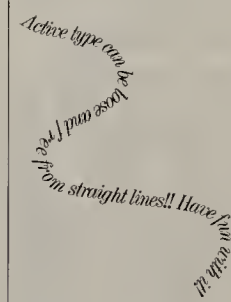 Active type can be loose and free from straight lines!! Have fun with it!